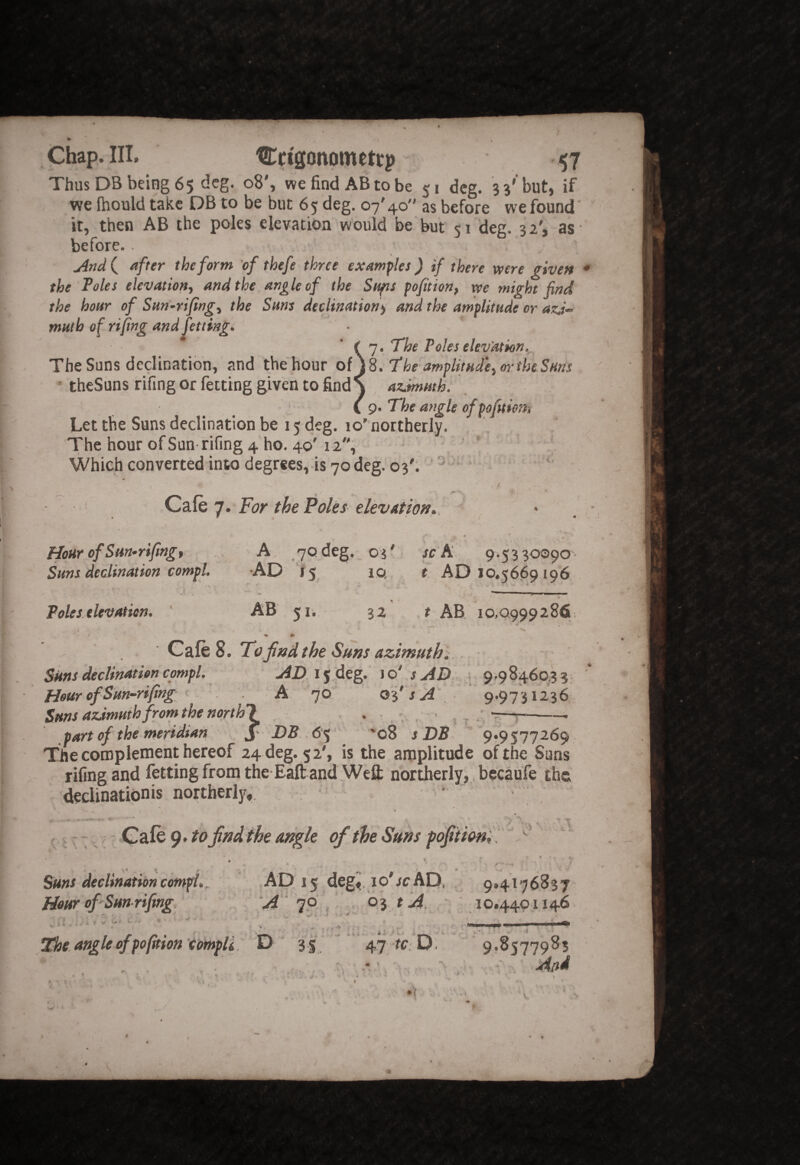 Chap. III. Trigonometry 57
Thus DB being 65 deg. 08', we find AB to be 51 deg. 33' but, if
we ſhould take DB to be but 65 deg. 07'40" as before we found
it, then AB the poles elevation would be but 51 deg. 32', as
before.
And ( after the form of theſe three examples ) if there were given
the Poles elevation, and the angle of the Suns poſition, we might find
the hour of Sun-riſing, the Suns declination, and the amplitude or azi-
muth of riſing and ſetting.
( 7. The Poles elevation.
The Suns declination, and the hour of ) 8. The amplitude, or the Suns
theSuns riſing or ſetting given to find azimuth.
( 9. The angle of poſition.
Let the Suns declination be 15 deg. 10' northerly.
The hour of Sun riſing 4 ho. 40' 12",
Which converted into degrees, is 70 deg. 03'.
Caſe 7. For the Poles elevation.
Hour of Sun-riſing, A 70 deg. 03' sc A 9.5330090
Suns declination compl. AD 15 10 t AD 10.5669196
Poles elevation. AB 51. 32 t AB 10.0999286
Caſe 8. To find the Suns azimuth.
Suns declination compl. AD 15 deg. 10' s AD 9.9846033
Hour of Sun-riſing A 70 03' s A 9.9731236
Suns azimuth from the north }
part of the meridian } DB 65 08 s DB 9.9577269
The complement hereof 24 deg. 52', is the amplitude of the Suns
riſing and ſetting from the Eaſt and Weſt northerly, becauſe the
declinationis northerly.
Caſe 9. to find the angle of the Suns poſition.
Suns declination compl. AD 15 deg. 10' sc AD. 9.4176837
Hour of Sun riſing A 70 03 t A 10.4401146
The angle of poſition compli D 35. 47 tc D. 9.8577983
And